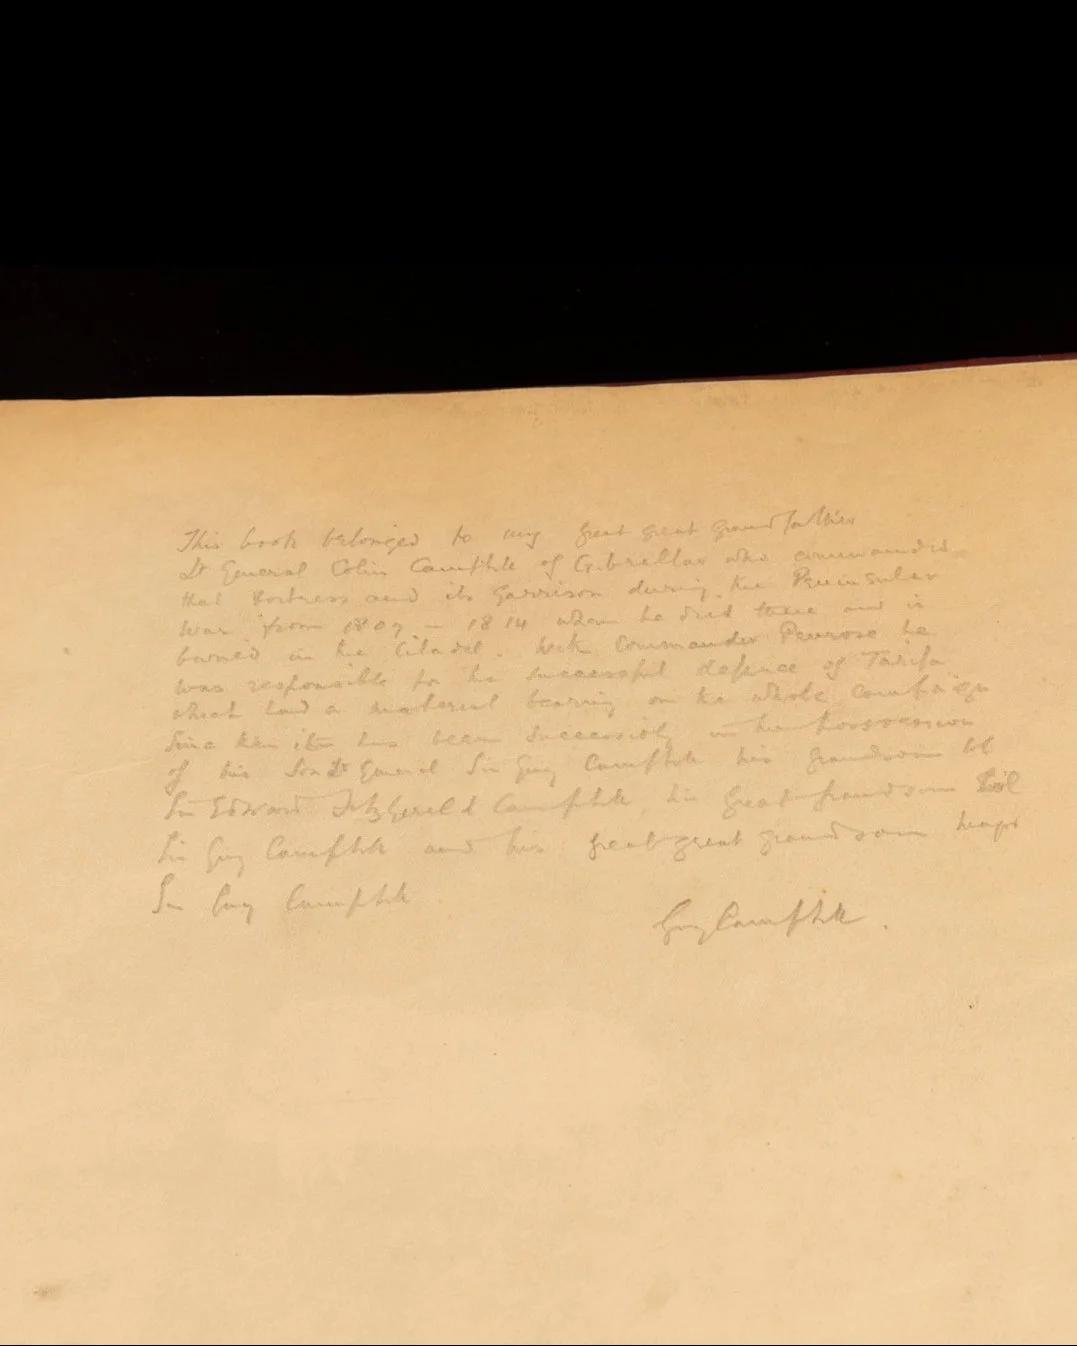 This book belonged to my great great grandfather
Lt General Colin Campbell of Gibraltar who commanded
that Fortress and its Garrison during the Peninsular
War from 1809 – 1814 when he died there and is
buried in the Citadel. With Commander Penrose he
was responsible for the successful defence of Tarifa
which had a material bearing on the whole campaign
Since then it has been successively in the possession
of his Son Lt General Sir Guy Campbell his grandson
Sir Edward FitzGerald Campbell, his great grandson
Sir Guy Campbell and his great great grandson Major
Sir Guy Campbell
Guy Campbell.